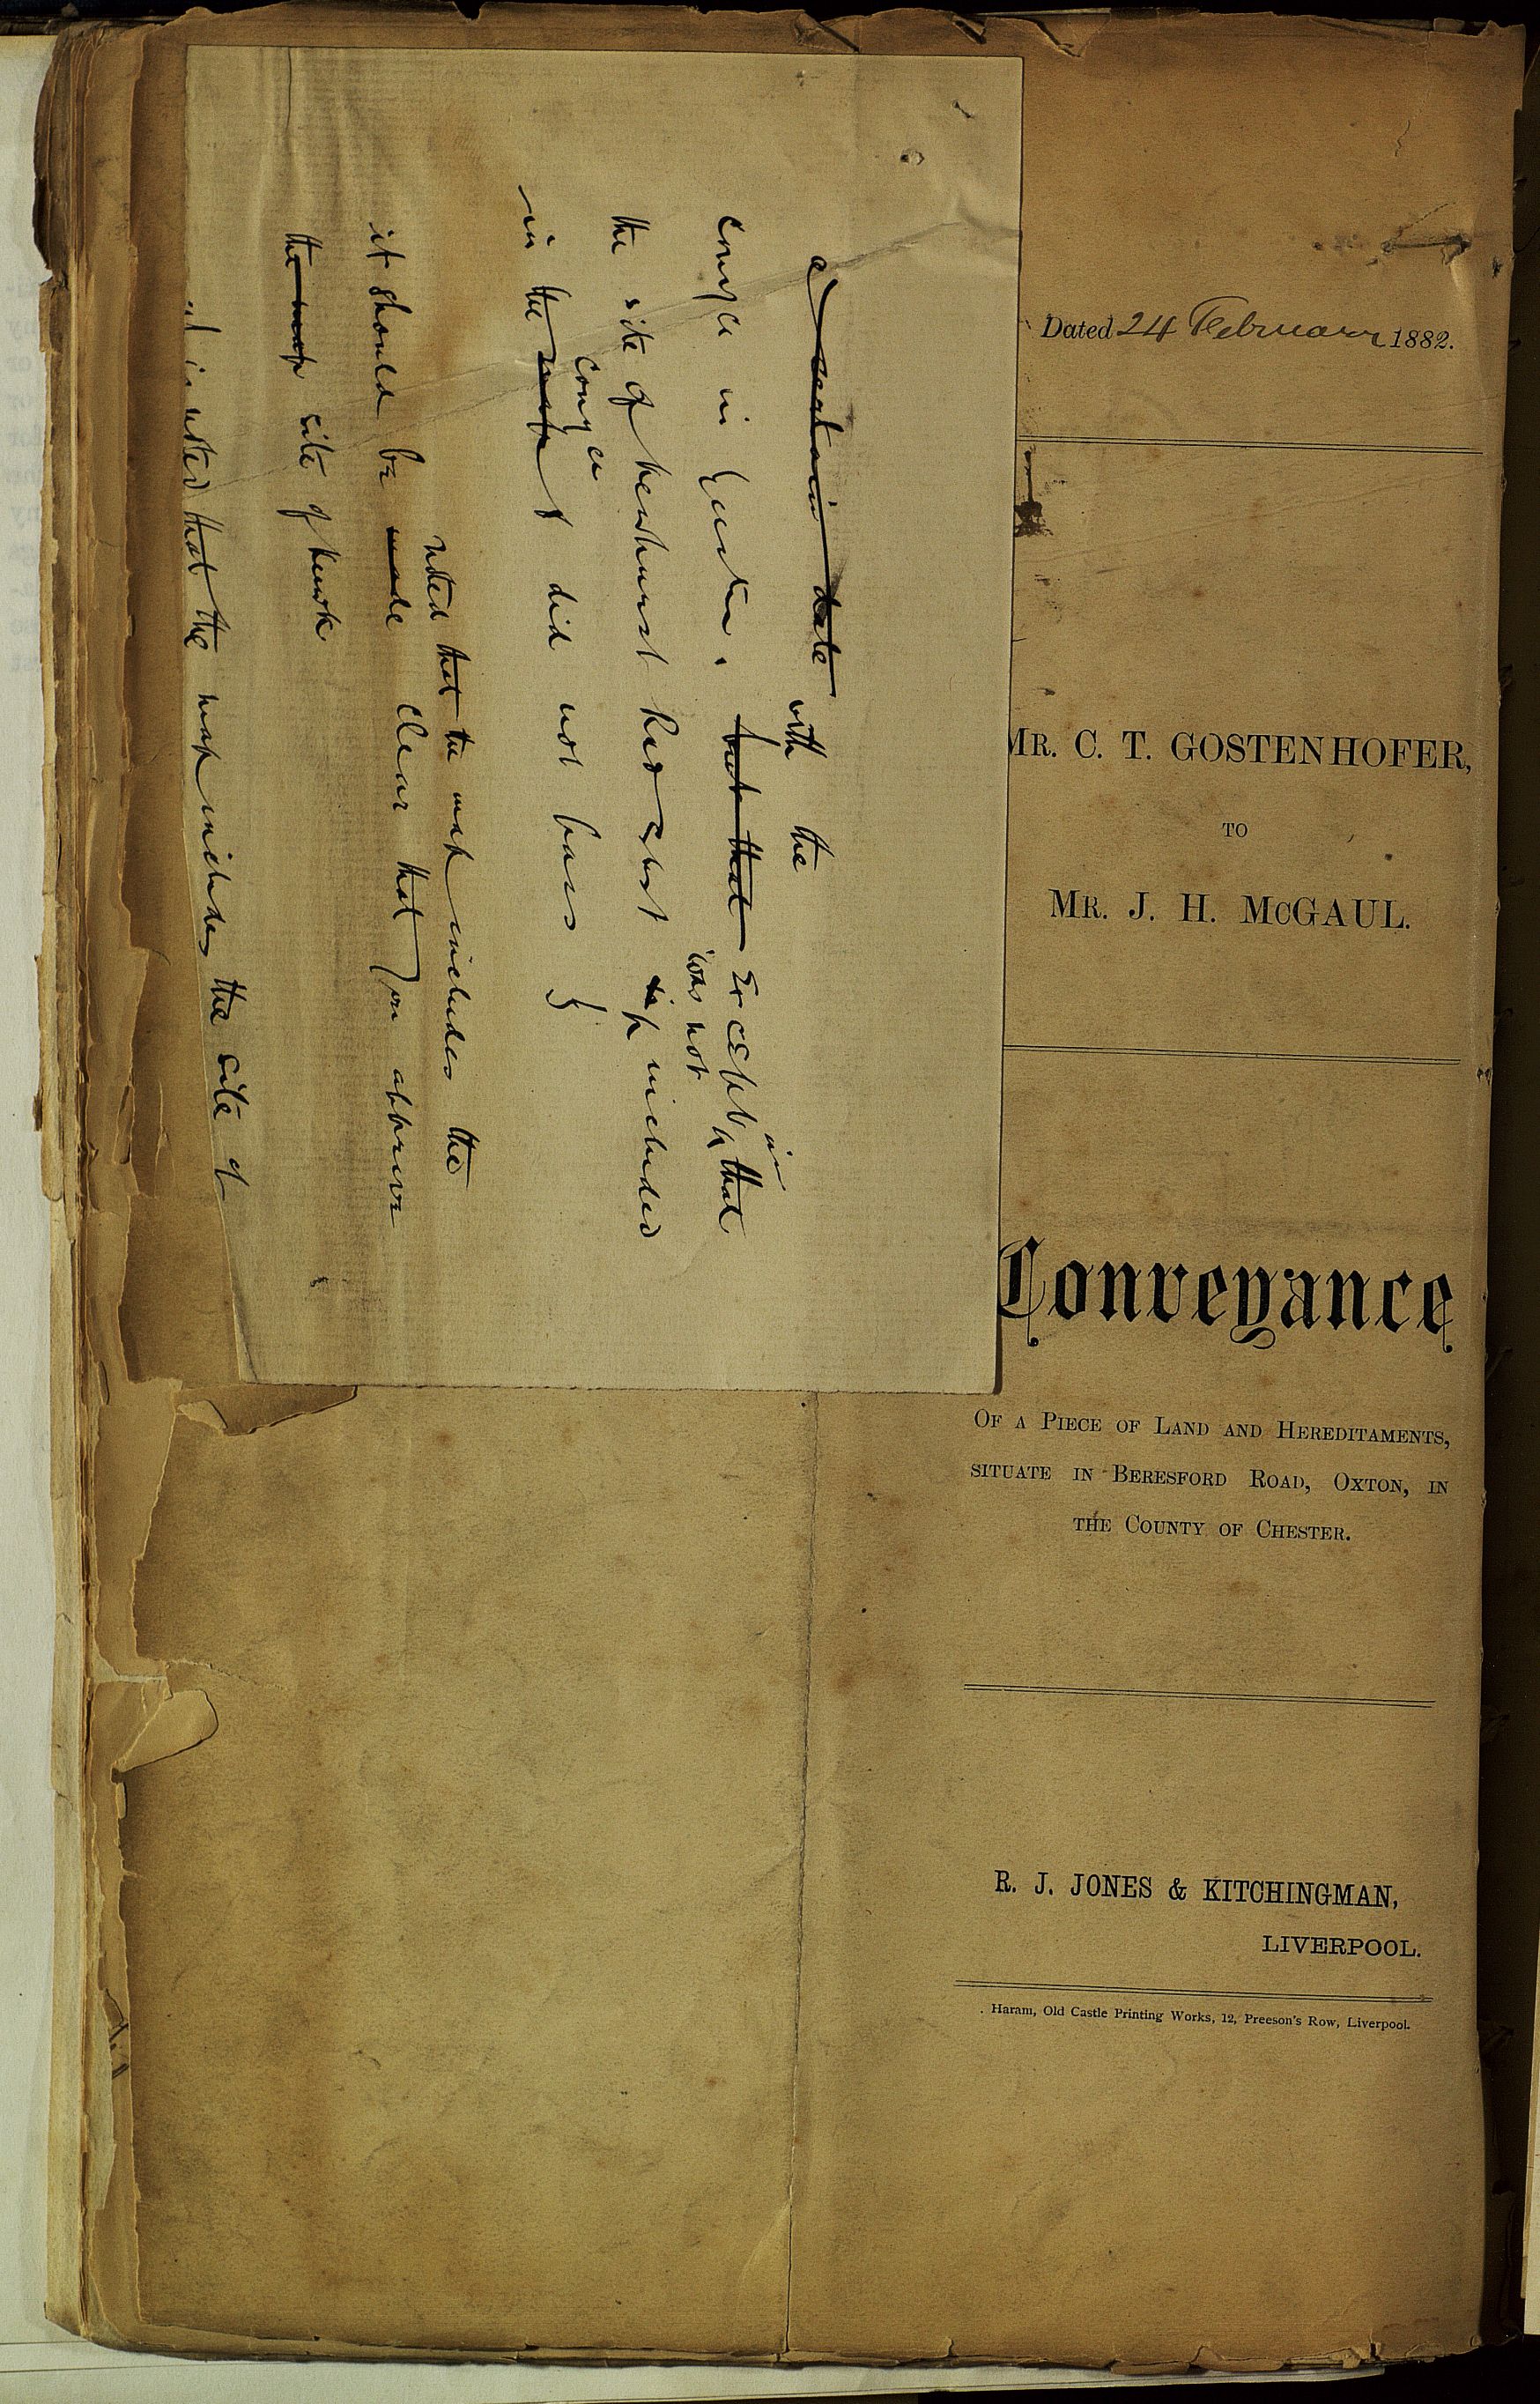 Dated 24 February 1882.
MR. C. T. GOSTENHOFER,
TO
MR. J. H. McGAUL.
Conveyance
OF A PIECE OF LAND AND HEREDITAMENTS,
SITUATE IN BERESFORD ROAD, OXTON, IN
THE COUNTY OF CHESTER.
R. J. JONES & KITCHINGMAN,
LIVERPOOL.
. Haram, Old Castle Printing Works, 12, Preeson's Row, Liverpool.
a certain date
with the
conyce in but that Except that
in
was not
the site of included
conyce
in the map did not
noted that the map includes the
it should be made clear that
the map site of
is noted that the map includes the site of